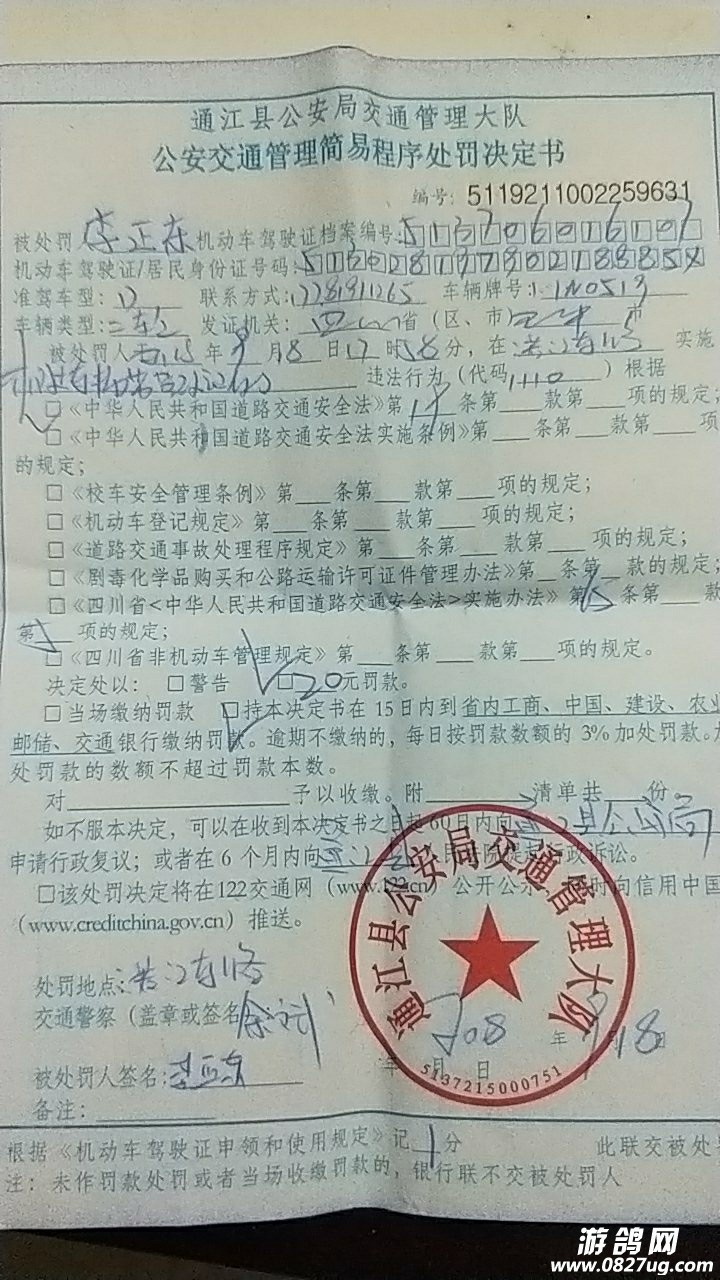 通江县公安局交通管理大队
公安交通管理简易程序处罚决定书
编号: 5119211002259631
被处罚 李正东 机动车驾驶证档案编号:
机动车驾驶证/居民身份证号码:
准驾车型: D 联系方式: 车辆牌号:
车辆类型: 二轮 发证机关: 四川省 (区、市) 市
被处罚人于 年9月8日17时58分, 在 实施
违法行为 (代码1110) 根据
□《中华人民共和国道路交通安全法》第 条第 款第 项的规定;
□《中华人民共和国道路交通安全法实施条例》第 条第 款第 项
的规定;
□《校车安全管理条例》第 条第 款第 项的规定;
□《机动车登记规定》第 条第 款第 项的规定;
□《道路交通事故处理程序规定》第 条第 款第 项的规定;
□《剧毒化学品购买和公路运输许可证件管理办法》第 条第 款的规定;
□《四川省<中华人民共和国道路交通安全法>实施办法》第15条第 款
第 项的规定;
□《四川省非机动车管理规定》第 条第 款第 项的规定。
决定处以: □警告 □20元罚款。
□当场缴纳罚款 □持本决定书在 15日内到省内工商、中国、建设、农业
邮储、交通银行缴纳罚款。逾期不缴纳的, 每日按罚款数额的 3%加处罚款。加
处罚款的数额不超过罚款本数。
对 予以收缴。附 清单共 份。
如不服本决定, 可以在收到本决定书之日起60日内向 县公安局
申请行政复议; 或者在 6 个月内向通江县人民法院提起行政诉讼。
□该处罚决定将在122交通网 (www.122.cn) 公开公示 时向信用中国
(www.creditchina.gov.cn) 推送。
处罚地点:
交通警察 (盖章或签名
通江县公安局交通管理大队
5137215000751
年 月 日
被处罚人签名: 李正东
备注:
根据《机动车驾驶证申领和使用规定》记1分 此联交被处
注: 未作罚款处罚或者当场收缴罚款的, 银行联不交被处罚人
游鸽网
www.0827ug.com